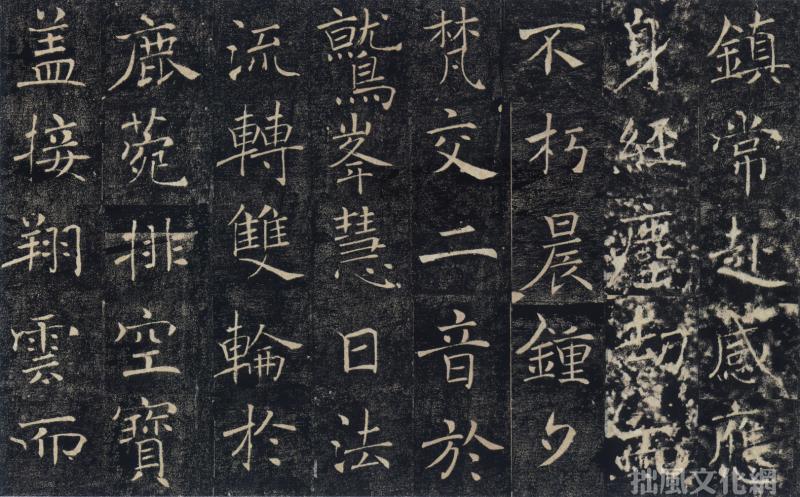 鎮常赴感應
身經塵劫而
不朽晨鍾夕
梵交二音於
鷲峯慧日法
流轉雙輪扵
鹿菀排空寶
盖接翔雲而
拙風文化網